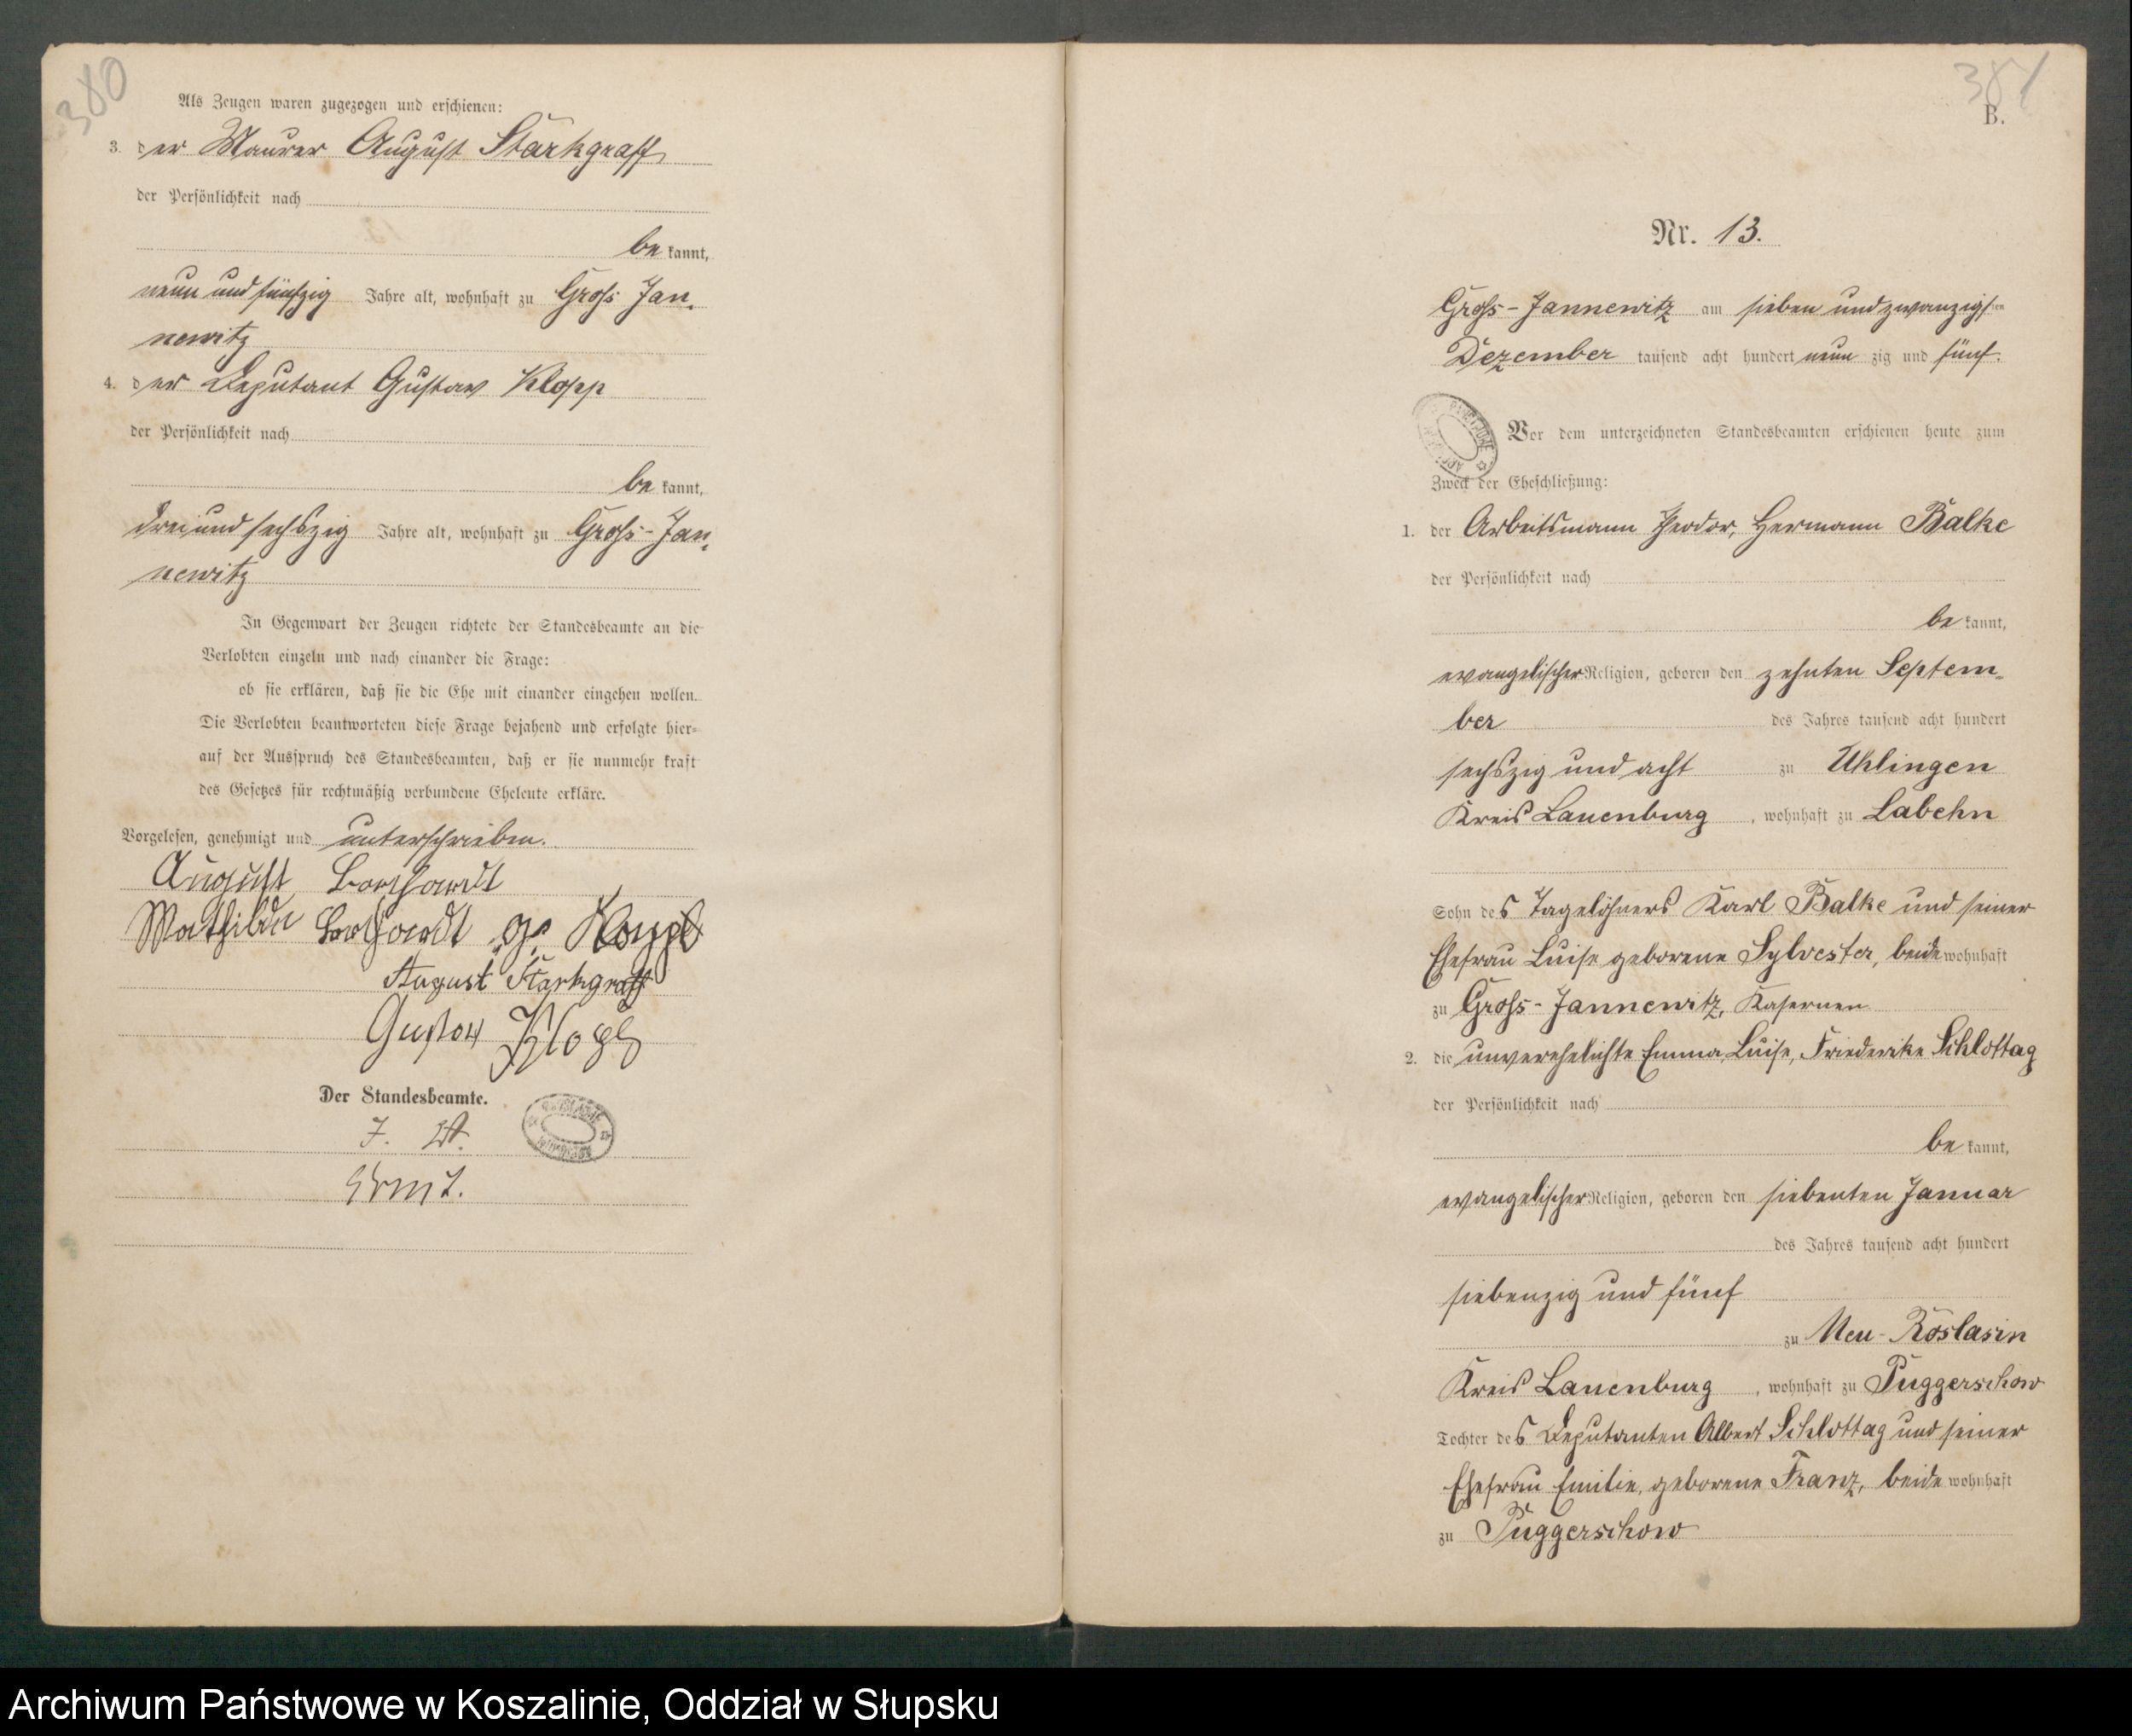 380
Als Zeugen waren zugezogen und erschienen:
3. der Maurer August Starkgraff
der Persönlichkeit nach
be kannt,
neun und fünfzig Jahre alt, wohnhaft zu Groß Jan-
newitz
4. der Deputant Gustav Klopp
der Persönlichkeit nach
be kannt,
drei und sechszig Jahre alt, wohnhaft zu Groß-Jan-
newitz
In Gegenwart der Zeugen richtete der Standesbeamte an die
Verlobten einzeln und nach einander die Frage:
ob sie erklären, daß sie die Ehe mit einander eingehen wollen.
Die Verlobten beantworteten diese Frage bejahend und erfolgte hier-
auf der Ausspruch des Standesbeamten, daß er sie nunmehr kraft
des Gesetzes für rechtmäßig verbundene Eheleute erkläre.
Vorgelesen, genehmigt und unterschrieben.
August Borchardt
Mathilde Borchardt
August Starkgraff
Gustav Klopp
Der Standesbeamte.
J. V.
381
B.
Nr. 13.
Groß-Jannewitz am sieben und zwanzigsten
Dezember tausend acht hundert neun zig und fünf.
Vor dem unterzeichneten Standesbeamten erschienen heute zum
Zweck der Eheschließung:
1. der Arbeitsmann Theodor, Hermann Balke
der Persönlichkeit nach
be kannt,
evangelischer Religion, geboren den zehnten Septem-
ber des Jahres tausend acht hundert
sechszig und acht zu Uhlingen
Kreis Lauenburg, wohnhaft zu Labehn
Sohn des Tagelöhners Karl Balke und seiner
Ehefrau Luise geborene Sylvester, beide wohnhaft
zu Groß-Jannewitz, Kasernen
2. die unverehelichte Emma, Luise, Friederike Schlottag
der Persönlichkeit nach
be kannt,
evangelischer Religion, geboren den siebenten Januar
des Jahres tausend acht hundert
siebenzig und fünf
zu Neu-Roslasin
Kreis Lauenburg, wohnhaft zu Puggerschow
Tochter des Deputanten Albert Schlottag und seiner
Ehefrau Emilie, geborene Franz, beide wohnhaft
zu Puggerschow
Archiwum Państwowe w Koszalinie, Oddział w Słupsku